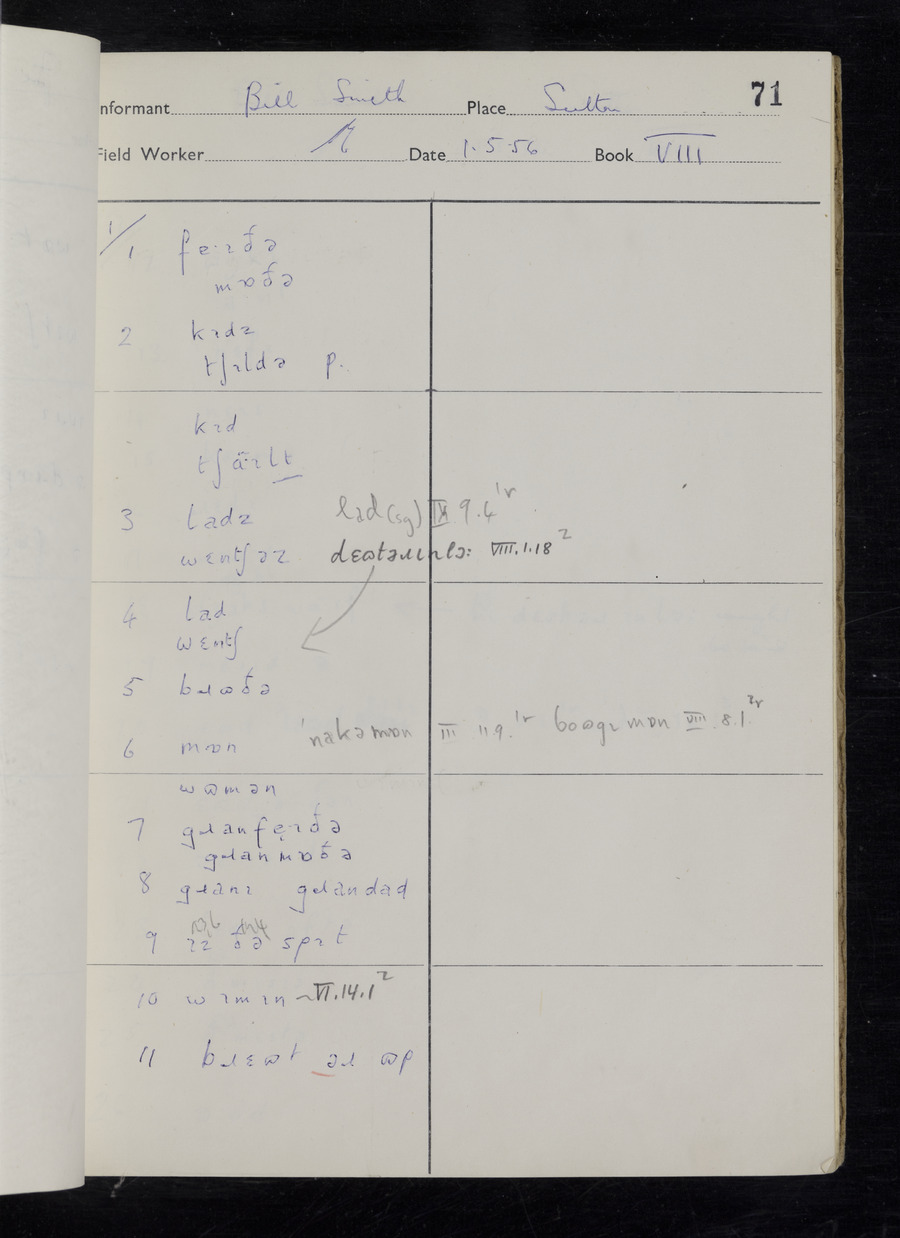 71
nformant Bill Smith Place Sutton
Field Worker Date 1.5.56 Book VIII
1/
1 feːɪðə
mɒðə
2 kɪdz
tʃɪldə p.
kɪd
tʃäɪlt
3 ladz lad (sg) IX 9.4 1r
wɛntʃəz dɛɷtəɹɪnlɔː VIII.1.18 2
4 lad
wɛntʃ
5 bɹɷðə
6 mɒn 'nakəmɒn III 11.9. 1r boɷgɪmɒn VIII 8.1. 2r
wɷmən
7 gɹanfe̞ɪðə
gɹanmɒðə
8 gɹanɪ gɹandad
9 ɪz ðə spɪt
10 wɪmɪn ~VI.14.1 2
11 bɹɛɷt əɹ ɷp